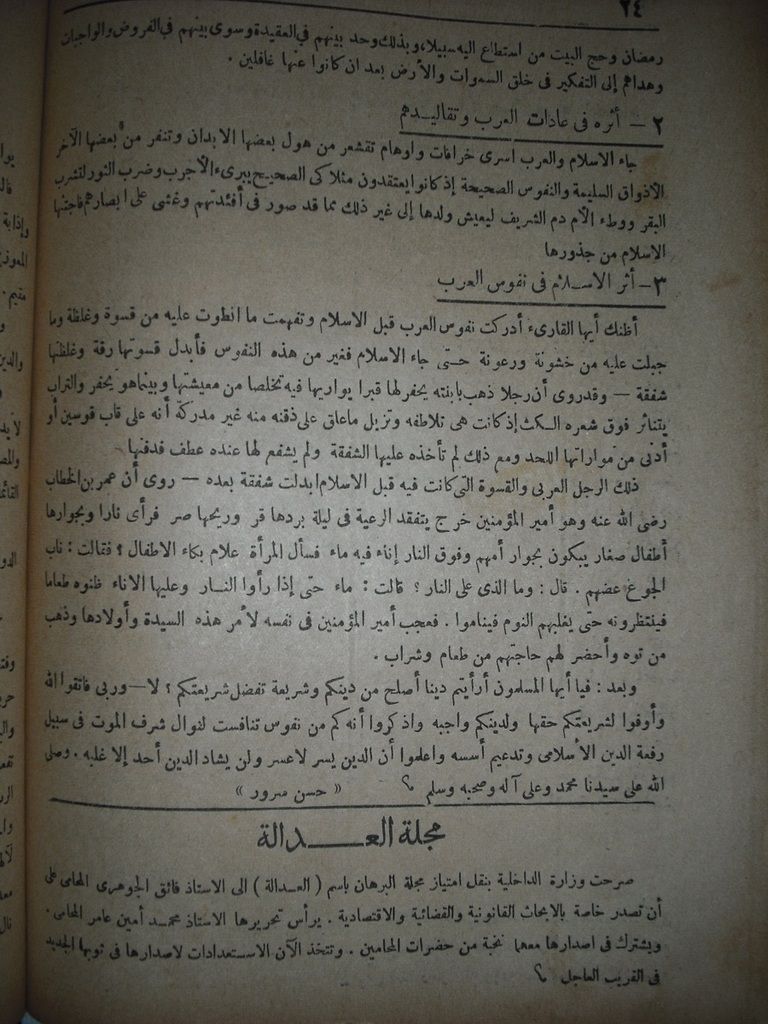 ٢٤
رمضان وحج البيت من استطاع اليه سبيلا، وبذلك وحد بينهم في العقيدة وسوى بينهم في الفروض والواجبات
وهداهم إلى التفكير فى خلق السموات والأرض بعد ان كانوا عنها غافلين .
٢ — أثره فى عادات العرب وتقاليدهم
جاء الاسلام والعرب اسرى خرافات واوهام تقشعر من هول بعضها الابدان وتنفر من بعضها الآخر
الاذواق السليمة والنفوس الصحيحة إذ كانوا يعتقدون مثلا كى الصحيح يبرىء الأجرب وضرب الثور لتشرب
البقر ووطء الأم دم الشريف ليعيش ولدها إلى غير ذلك مما قد صور فى أفئدتهم وغشى على ابصارهم فاجتثها
الاسلام من جذورها
٣ — أثر الاسلام فى نفوس العرب
أظنك أيها القارىء أدركت نفوس العرب قبل الاسلام وتفهمت ما انطوت عليه من قسوة وغلظة وما
جبلت عليه من خشونة ورعونة حتى جاء الاسلام فغير من هذه النفوس فأبدل قسوتها رقة وغلظتها
شفقة — وقد روى أن رجلا ذهب بابنته يحفر لها قبرا يواريها فيه تخلصا من معيشتها وبينما هو يحفر والتراب
يتناثر فوق شعره الكث إذ كانت هى تلاطفه وتزيل ما علق على ذقنه منه غير مدركة أنه على قاب قوسين أو
أدنى من مواراتها اللحد ومع ذلك لم تأخذه عليها الشفقة ولم يشفع لها عنده عطف فدفنها
ذلك الرجل العربى والقسوة التى كانت فيه قبل الاسلام ابدلت شفقة بعده — روى أن عمر بن الخطاب
رضى الله عنه وهو أمير المؤمنين خرج يتفقد الرعية فى ليلة بردها قر وريحها صر فرأى نارا وبجوارها
أطفال صغار يبكون بجوار أمهم وفوق النار إناء فيه ماء فسأل المرأة علام بكاء الاطفال ؟ فقالت : ناب
الجوع عضهم . قال : وما الذى على النار ؟ قالت : ماء حتى إذا رأوا النار وعليها الاناء ظنوه طعاما
فينتظرونه حتى يغلبهم النوم فيناموا . فعجب أمير المؤمنين فى نفسه لأمر هذه السيدة وأولادها وذهب
من توه وأحضر لهم حاجتهم من طعام وشراب .
وبعد : فيا أيها المسلمون أرأيتم دينا أصلح من دينكم وشريعة تفضل شريعتكم ؟ لا — وربى فاتقوا الله
وأوفوا لشريعتكم حقها ولدينكم واجبه واذكروا أنه كم من نفوس تنافست لنوال شرف الموت فى سبيل
رفعة الدين الأسلامى وتدعيم أسسه واعلموا أن الدين يسر لا عسر ولن يشاد الدين أحد إلا غلبه . وصلى
الله على سيدنا محمد وعلى آله وصحبه وسلم « حسن سرور »
مجلة العــدالة
صرحت وزارة الداخلية بنقل امتياز مجلة البرهان باسم ( العدالة ) الى الاستاذ فائق الجوهرى المحامى على
أن تصدر خاصة بالابحاث القانونية والقضائية والاقتصادية . يرأس تحريرها الاستاذ محمد أمين عامر المحامى .
ويشترك فى اصدارها معهما نخبة من حضرات المحامين . وتتخذ الآن الاستعدادات لاصدارها فى ثوبها الجديد
فى القريب العاجل